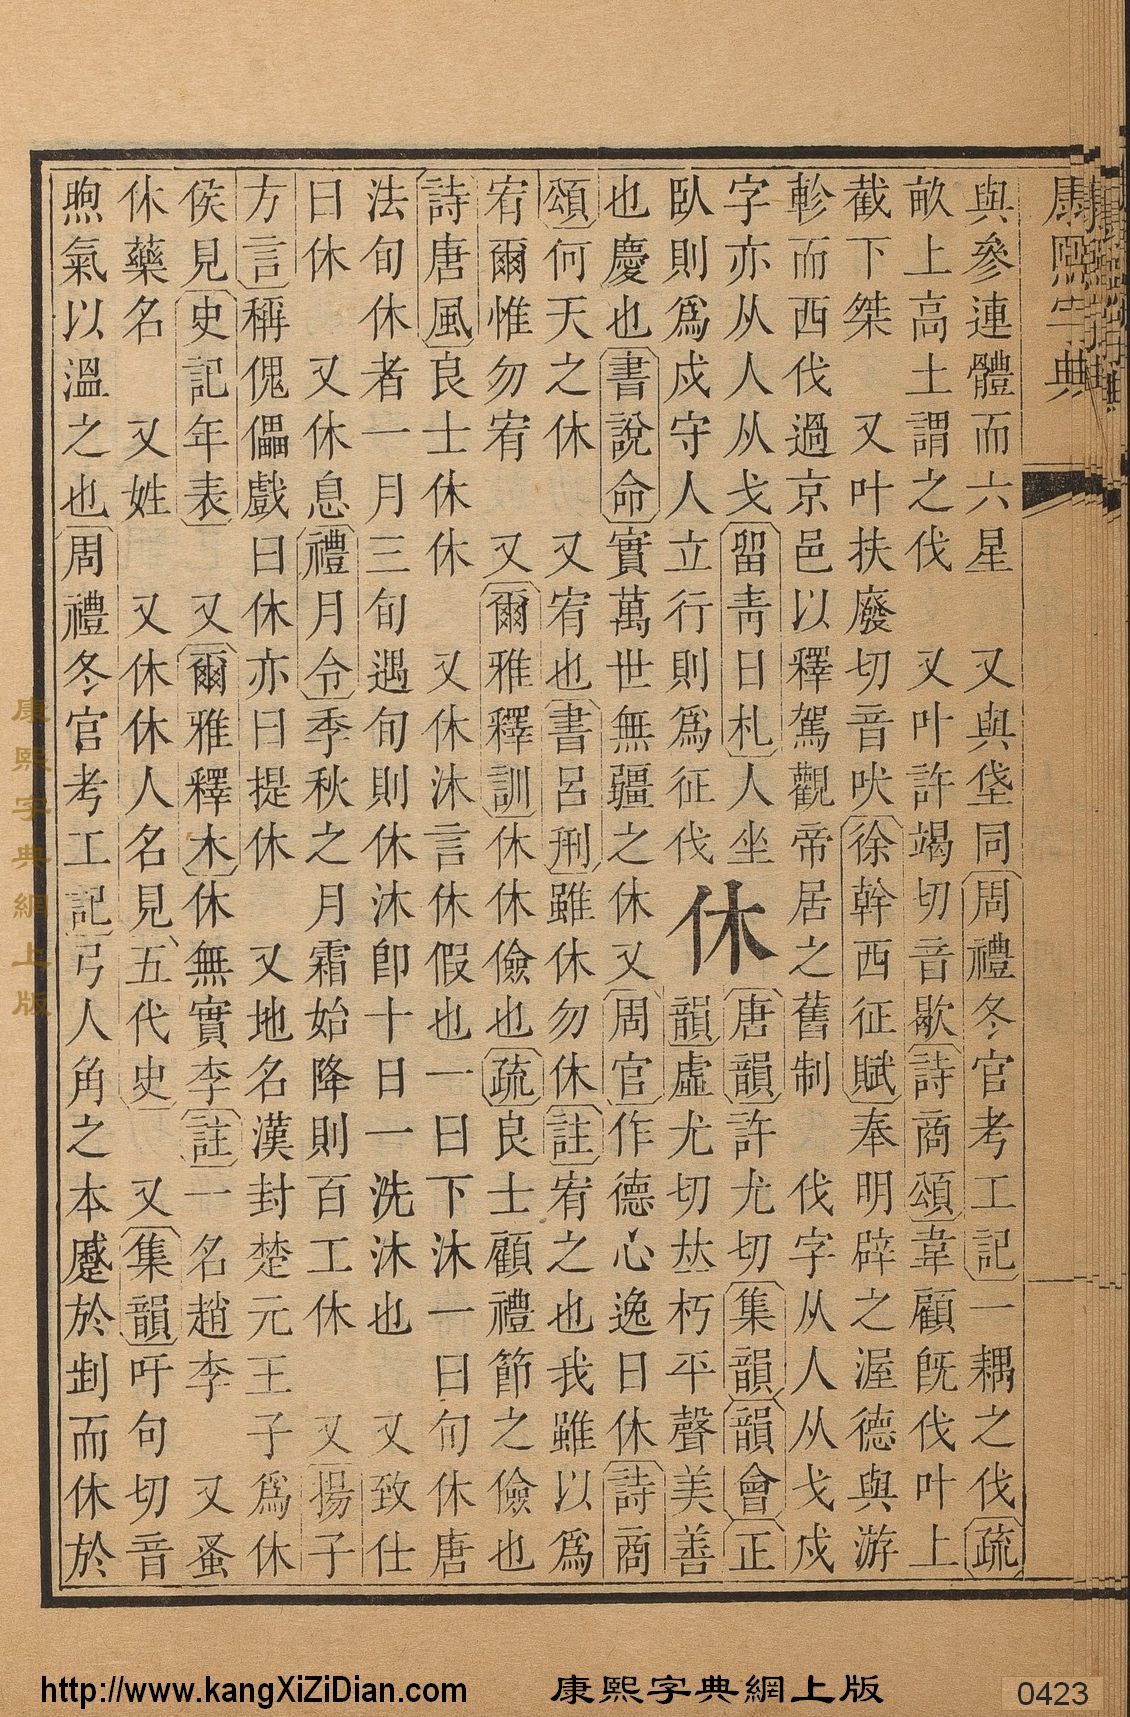 康熙字典
與參連體而六星　又與垡同周禮冬官考工記一耦之伐疏
畝上高土謂之伐　又叶許竭切音歇詩商頌韋顧旣伐叶上
截下桀　又叶扶廢切音吠徐幹西征賦奉明辟之渥德與游
軫而西伐過京邑以釋駕觀帝居之舊制　伐字从人从戈戍
字亦从人从戈留靑日札人坐
臥則爲戍守人立行則爲征伐
休
唐韻許尤切集韻韻會正
韻虛尤切𠀤朽平聲美善
也慶也書說命實萬世無疆之休又周官作德心逸日休詩商
頌何天之休　又宥也書呂刑雖休勿休註宥之也我雖以爲
宥爾惟勿宥　又爾雅釋訓休休儉也疏良士顧禮節之儉也
詩唐風良士休休　又休沐言休假也一曰下沐一曰旬休唐
法旬休者一月三旬遇旬則休沐卽十日一洗沐也　又致仕
曰休　又休息禮月令季秋之月霜始降則百工休　又揚子
方言稱傀儡戲曰休亦曰提休　又地名漢封楚元王子爲休
侯見史記年表　又爾雅釋木休無實李註一名趙李　又蚤
休藥名　又姓　又休休人名見五代史　又集韻吁句切音
煦氣以溫之也周禮冬官考工記弓人角之本蹙於𠜶而休於
康熙字典網上版
http://www.kangXiZiDian.com 康熙字典網上版 0423